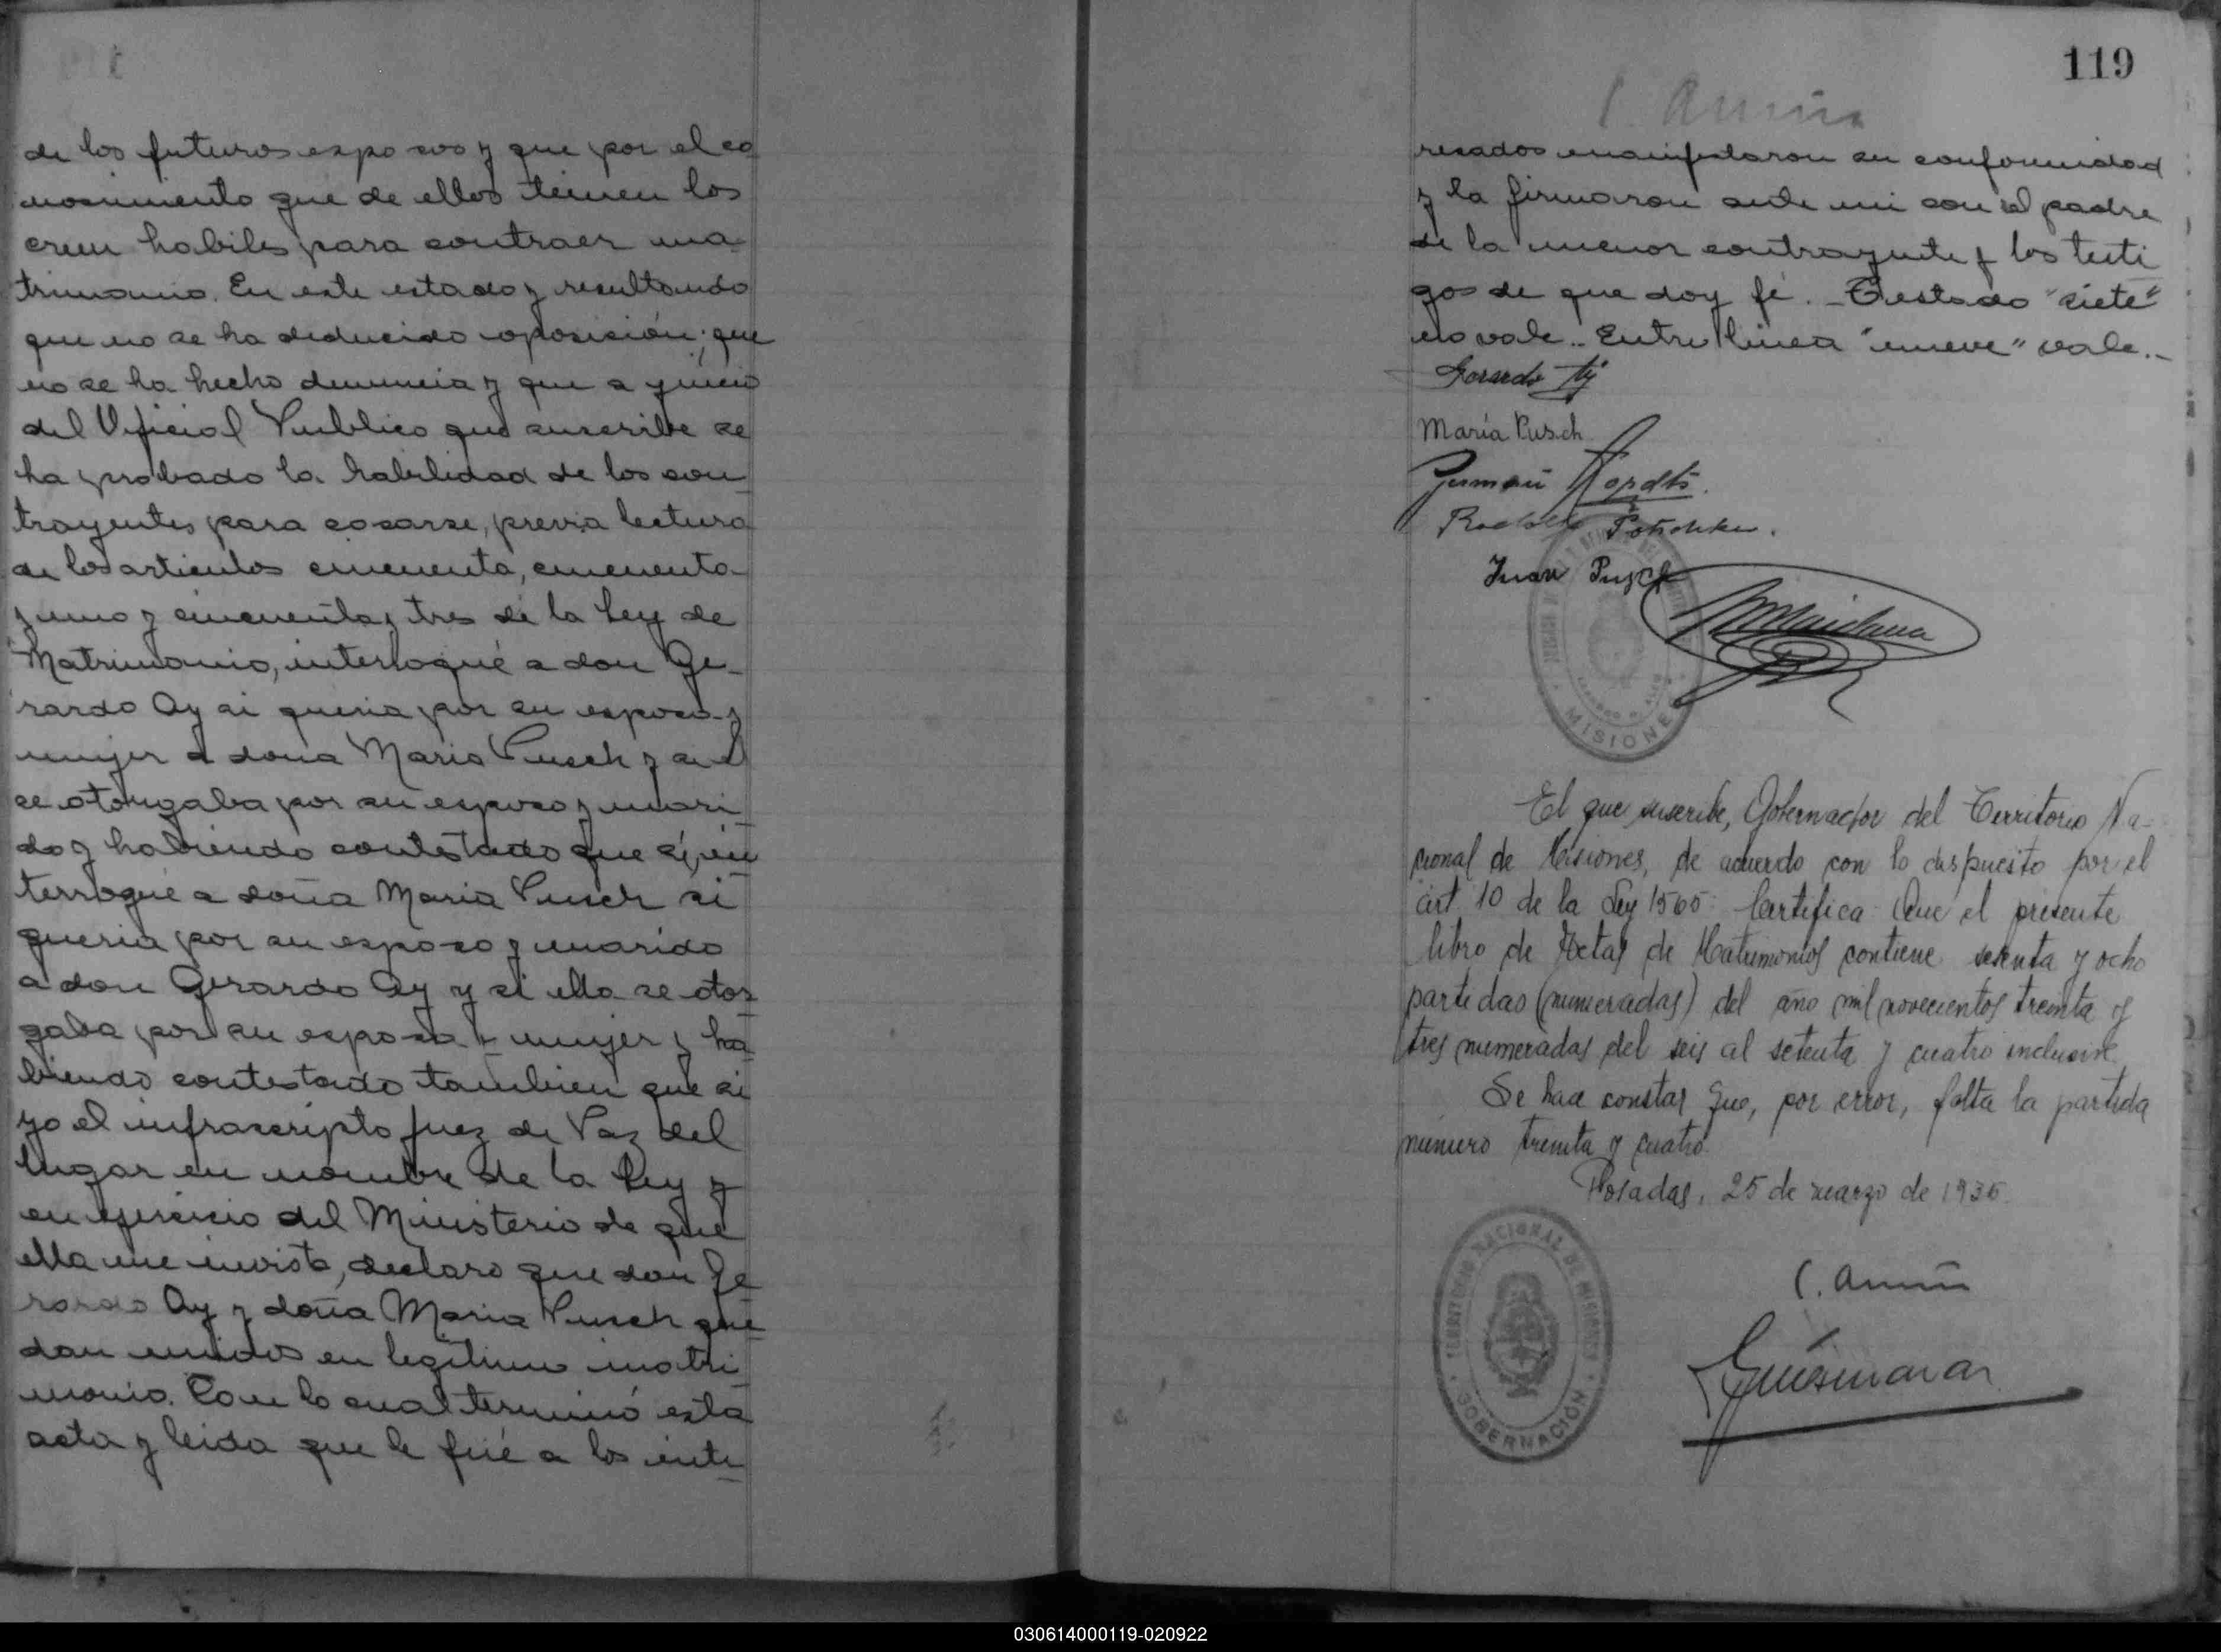 de los futuros esposos y que por el co
nocimiento que de ellos tienen los
creen habiles para contraer ma-
trimonio. En este estado y resultando
que no se ha deducido oposición; que
no se ha hecho denuncia y que a juicio
del Oficial Publico que suscribe se
ha probado la habilidad de los con
trayentes para casarse, previa lectura
de los articulos cincuenta, cincuenta
y uno y cincuenta y tres de la Ley de
Matrimonio, interrogué a don Ge-
rardo Ay si queria por su esposa y
mujer a doña Maria Pusch y si el
se otorgaba por su esposo y mari
do y habiendo contestado que si, in
terrogué a doña Maria Pusch si
queria por su esposo y marido
a don Gerardo Ay y si ella se otor
gaba por su esposa y mujer y ha
biendo contestado tambien que si
yo el infrascripto Juez de Paz del
lugar en nombre de la Ley y
en ejercicio del Ministerio de que
ella me invista, declaro que don Ge
rardo Ay y doña Maria Pusch que
dan unidos en legitimo matri
monio. Con lo cual terminó esta
acta y leida que le fué a los inte
119
resados manifestaron su conformidad
y la firmaron ante mi con el padre
de la menor contrayente y los testi
gos de que doy fé. - Testado "siete"
no vale.. Entre linea "nueve" vale.-
Gerardo Ay
María Pusch
Germán
Juan Pusch
MISIONES
El que suscribe, Gobernador del Territorio Na-
cional de Misiones, de acuerdo con lo dispuesto por el
art. 10 de la Ley 1565 Certifica: Que el presente
libro de Actas de Matrimonios contiene sesenta y ocho
partidas (numeradas) del año mil novecientos treinta y
tres numeradas del seis al setenta y cuatro inclusive.
Se hace constar que, por error, falta la partida
número treinta y cuatro.
Posadas, 25 de marzo de 1935.
TERRITORIO NACIONAL DE MISIONES
GOBERNACIÓN
030614000119-020922